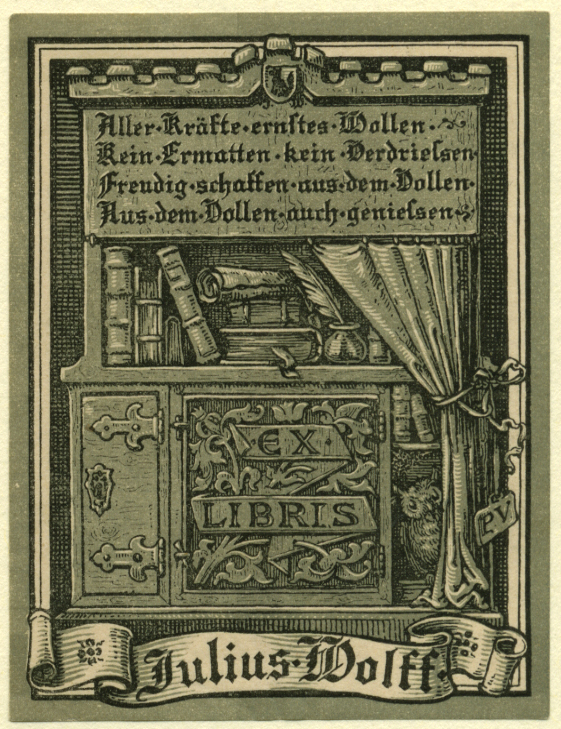 Aller·Kräfte·ernſtes·Wollen·
Kein·Ermatten·kein·Verdrieſsen
Freudig·schaffen·aus·dem·Vollen·
Aus·dem·Vollen·auch·genieſsen·
EX·
LIBRIS
P.V.
Julius·Wolff·